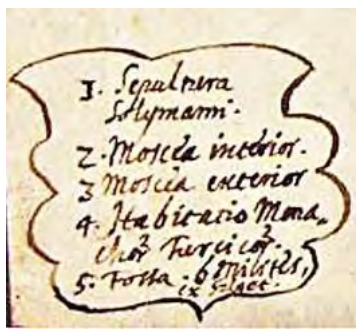 1. Sepultura
Solymanni.
2. Moscéa intérior.
3 Moscéa exterior
4. Habitatio Mona„
chor Turcicor.
5. Fossa. 6.
ex